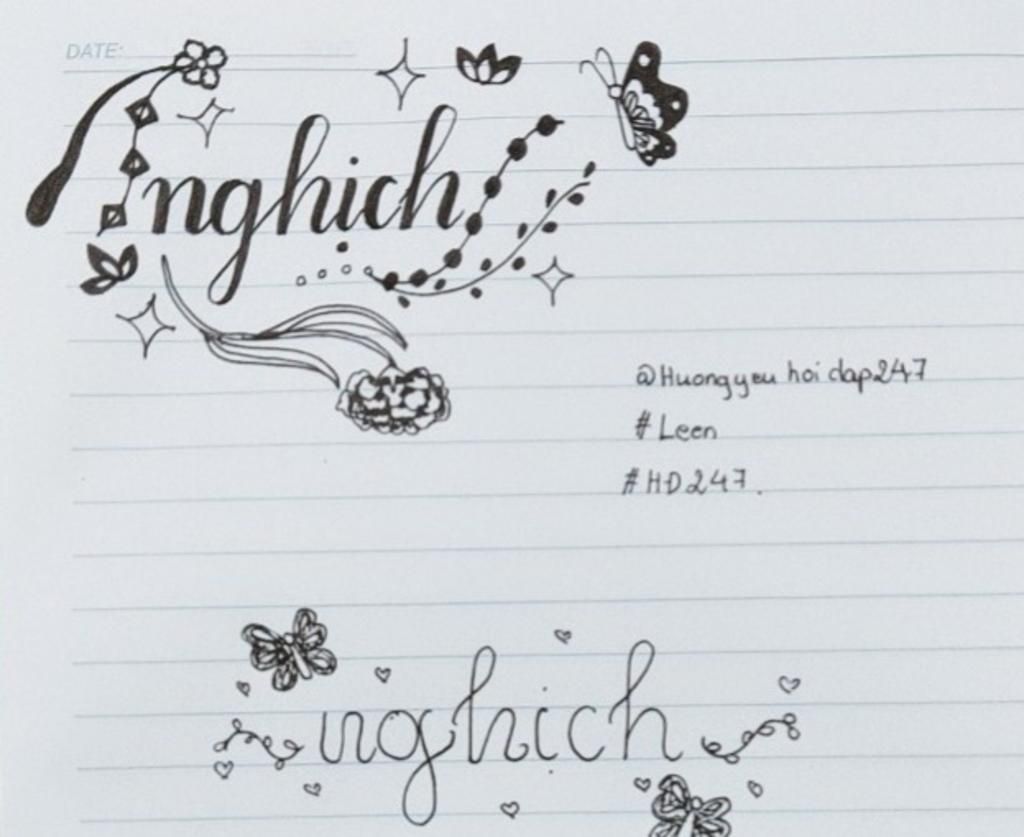 DATE:
nghịch
@Huongyeu hoi dap247
# Leen
# HD247.
nghịch